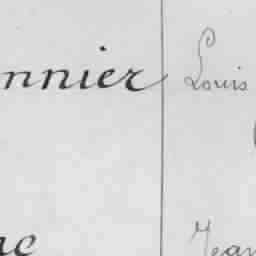 nnier Louis
ne Jean